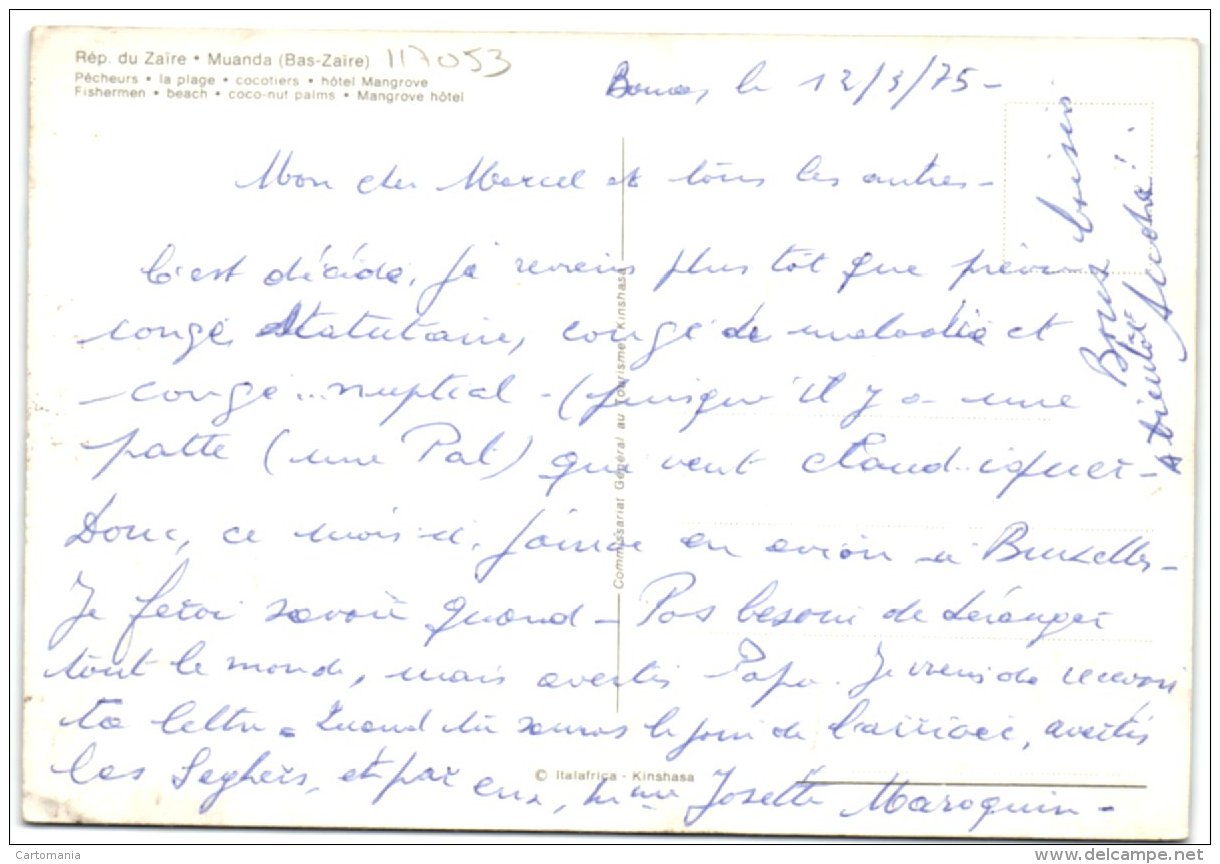 Rép. du Zaïre • Muanda (Bas-Zaïre) 117053
Pêcheurs • la plage • cocotiers • hôtel Mangrove
Fishermen • beach • coco-nut palms • Mangrove hôtel
le 12/3/75 -
Mon cher Marcel et tous les autres -
C'est décidé, je reviens plus tôt que prévu
congé statutaire, congé de maladie et
congé .. nuptial - (puisqu'il y a une
patte (une Pat) qui veut claud..iquer -
Donc, ce mois-ci, j'arrive en avion à Bruxelles -
Je ferai savoir quand - Pas besoin de déranger
tout le monde, mais avertis Papa. Je viens de recevoir
ta lettre. Quand tu sauras le jour de l'arrivée, avertis
les Seghers, et par eux, Mme Josette Maroquin -
Bons baisers
A bientôt
Commissariat Général au Tourisme Kinshasa
© Italafrica - Kinshasa
Cartomania
www.delcampe.net